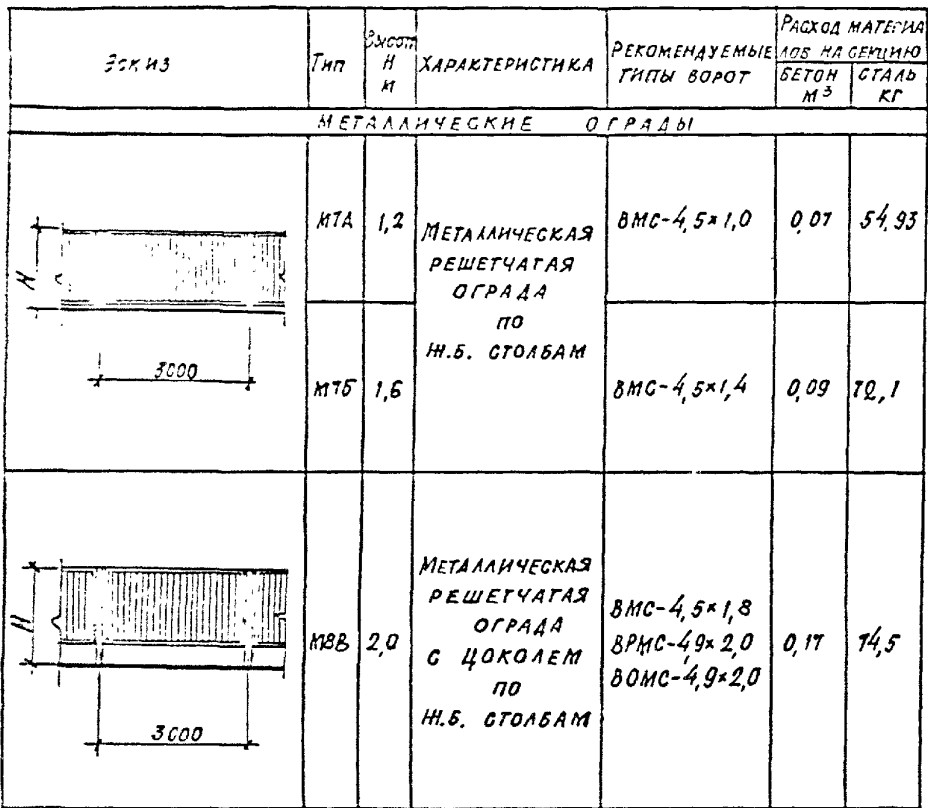 Эскиз
Тип
Высота
Н
м
Характеристика
Рекомендуемые
типы ворот
Расход материа
лов на секцию
Бетон
м³
Сталь
кг
Металлические ограды
Н
3000
М7А
1,2
Металлическая
решетчатая
ограда
по
ж.б. столбам
ВМС-4,5×1,0
0,07
54,93
М7Б
1,6
ВМС-4,5×1,4
0,09
72,1
Н
3000
М8В
2,0
Металлическая
решетчатая
ограда
с цоколем
по
ж.б. столбам
ВМС-4,5×1,8
ВРМС-4,9×2,0
ВОМС-4,9×2,0
0,17
74,5